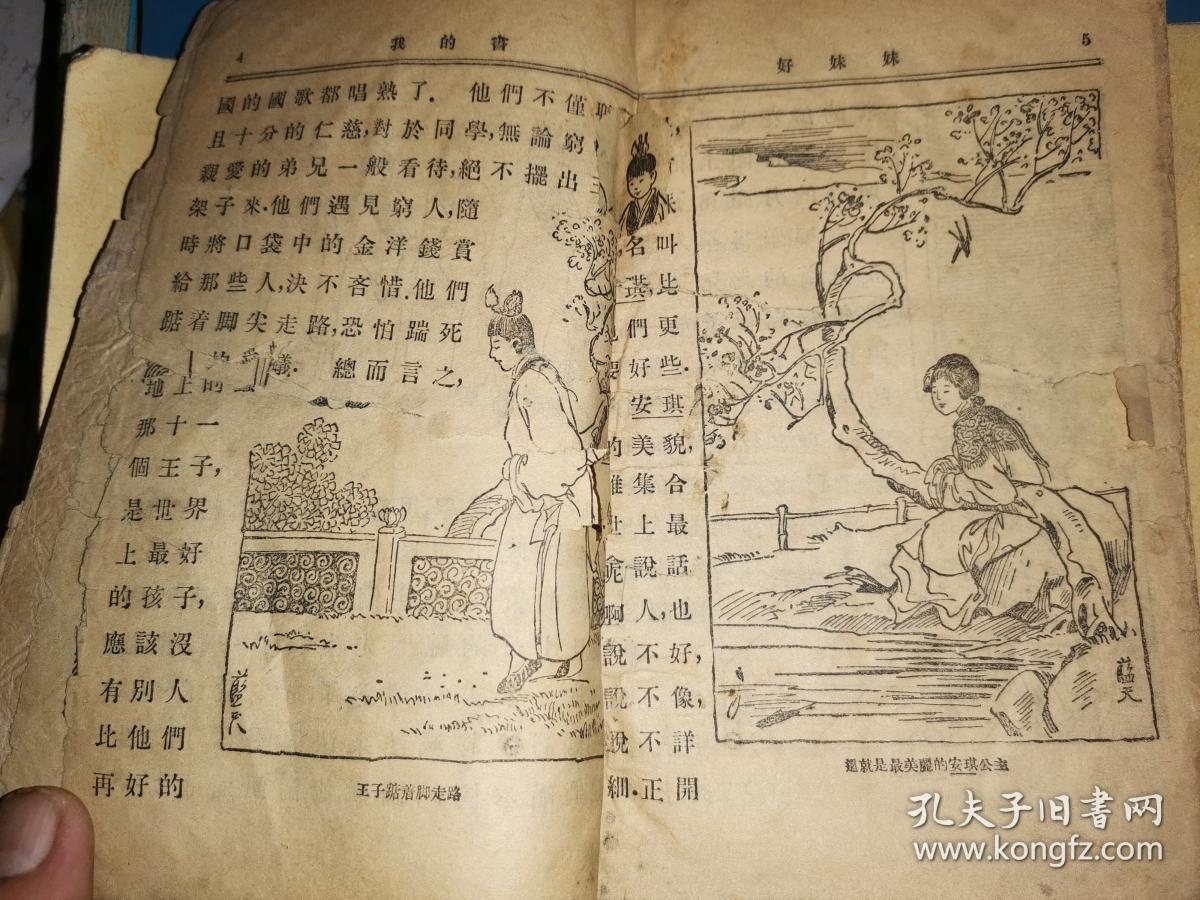 4
我的書
國的國歌都唱熟了. 他們不僅
且十分的仁慈,對於同學,無論窮
親愛的弟兄一般看待,絕不擺出
架子來.他們遇見窮人,隨
時將口袋中的金洋錢賞
給那些人,決不吝惜.他們
踮着脚尖走路,恐怕踹死
地上的 蟻. 總而言之,
那十一
個王子,
是世界
上最好
的孩子,
應該沒
有別人
比他們
再好的
藍天
王子踮着脚走路
好妹妹
5
名叫
琪,比
們更
好些.
安琪
的美貌,
集合
世上最
說話
啊人,也
說不好,
說不像,
說不詳
細.正開
藍天
這就是最美麗的安琪公主
孔夫子旧书网
www.kongfz.com